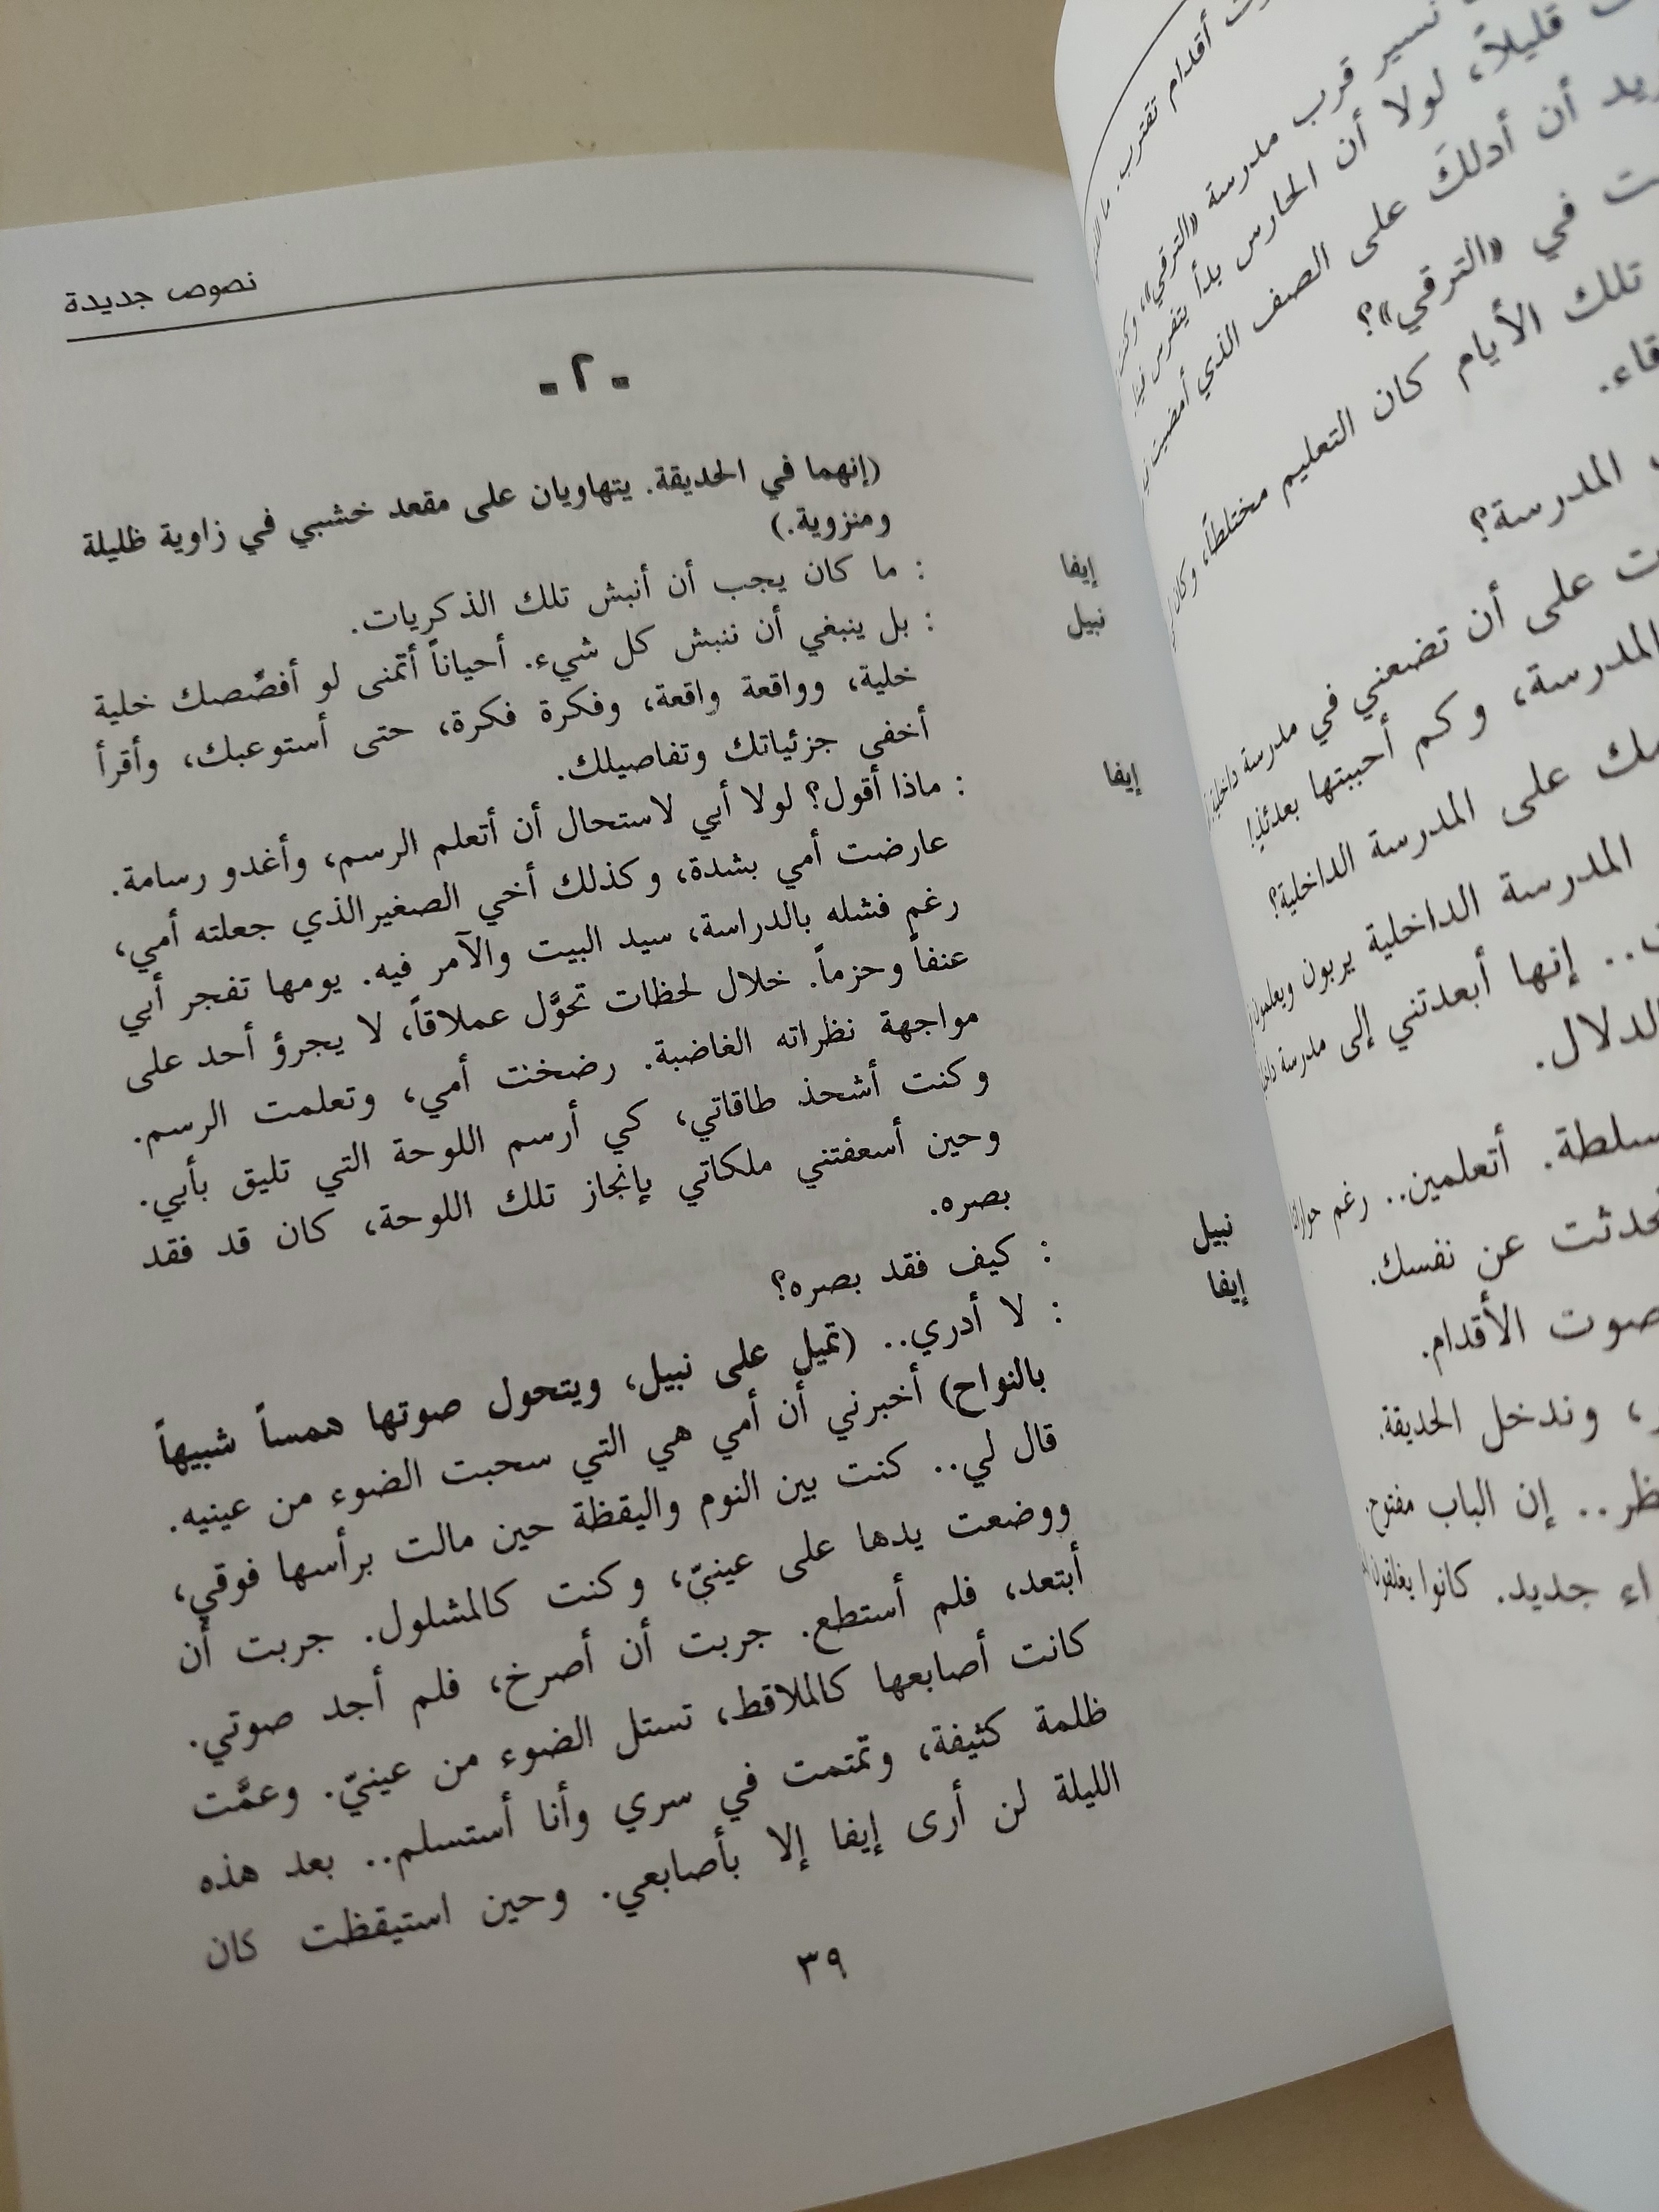 نسير قرب مدرسة «الترقي»،
قليلاً، لولا أن الحارس بدأ يتفرس فينا
أن أدلكَ على الصف الذي أمضيت
في «الترقي»؟
تلك الأيام كان التعليم مختلطاً، وكان
المدرسة؟
على أن تضعني في مدرسة داخلية
المدرسة، وكم أحببتها بعدئذ!
على المدرسة الداخلية؟
المدرسة الداخلية يربون ويعلمون
.. إنها أبعدتني إلى مدرسة
الدلال.
أتعلمين.. رغم
عن نفسك.
صوت الأقدام.
وندخل الحديقة.
إن الباب مفتوح.
جديد. كانوا يغلقون
نصوص جديدة
- ٢ -
(إنهما في الحديقة. يتهاويان على مقعد خشبي في زاوية ظليلة
ومنزوية.)
إيفا : ما كان يجب أن أنبش تلك الذكريات.
نبيل : بل ينبغي أن ننبش كل شيء. أحياناً أتمنى لو أفصّصك خلية
خلية، وواقعة واقعة، وفكرة فكرة، حتى أستوعبك، وأقرأ
أخفى جزئياتك وتفاصيلك.
إيفا : ماذا أقول؟ لولا أبي لاستحال أن أتعلم الرسم، وأغدو رسامة.
عارضت أمي بشدة، وكذلك أخي الصغير الذي جعلته أمي،
رغم فشله بالدراسة، سيد البيت والآمر فيه. يومها تفجر أبي
عنفاً وحزماً. خلال لحظات تحوَّل عملاقاً، لا يجرؤ أحد على
مواجهة نظراته الغاضبة. رضخت أمي، وتعلمت الرسم.
وكنت أشحذ طاقاتي، كي أرسم اللوحة التي تليق بأبي.
وحين أسعفتني ملكاتي بإنجاز تلك اللوحة، كان قد فقد
بصره.
نبيل : كيف فقد بصره؟
إيفا : لا أدري.. (تميل على نبيل، ويتحول صوتها همساً شبيهاً
بالنواح) أخبرني أن أمي هي التي سحبت الضوء من عينيه.
قال لي.. كنت بين النوم واليقظة حين مالت برأسها فوقي،
ووضعت يدها على عينيّ، وكنت كالمشلول. جربت أن
أبتعد، فلم أستطع. جربت أن أصرخ، فلم أجد صوتي.
كانت أصابعها كالملاقط، تستل الضوء من عينيّ. وعمَّت
ظلمة كثيفة، وتمتمت في سري وأنا أستسلم.. بعد هذه
الليلة لن أرى إيفا إلا بأصابعي. وحين استيقظت كان
٣٩